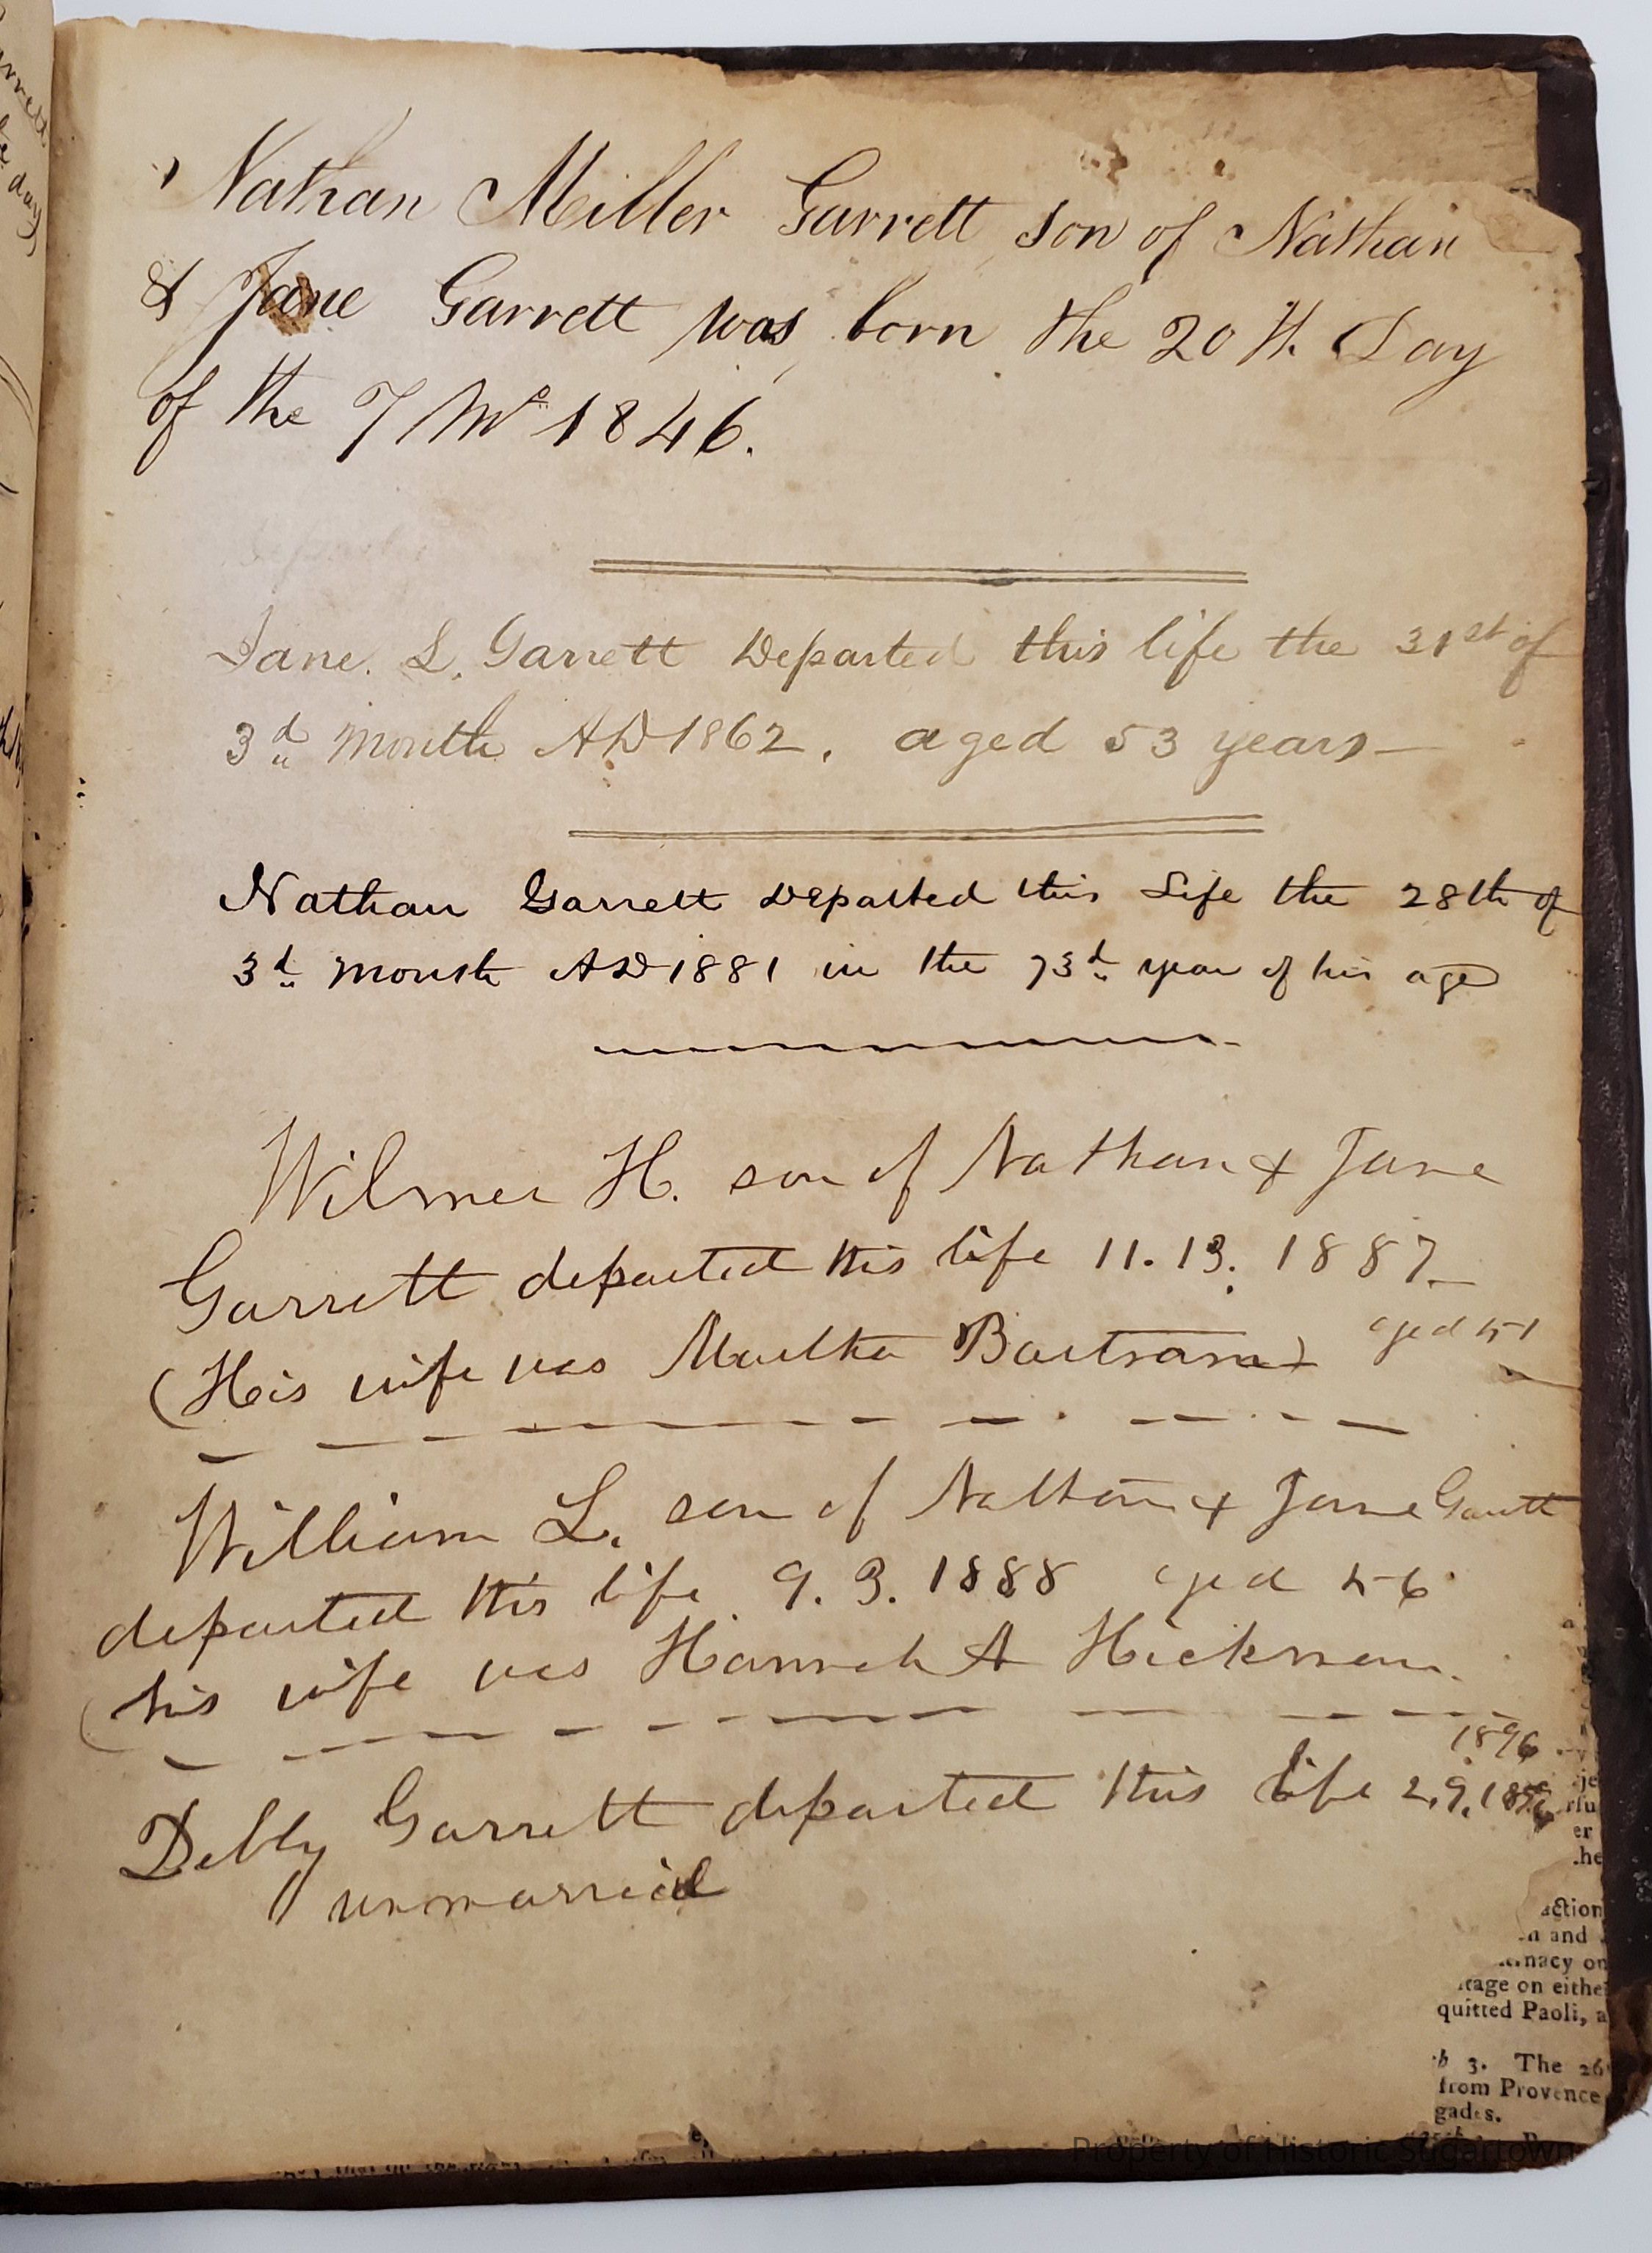 Nathan Miller Garrett son of Nathan
& Jane Garrett was born the 20th. Day
of the 7 Mo 1846.
Jane. L. Garrett Departed this life the 31st of
3d month AD 1862. aged 53 years—
Nathan Garrett Departed this Life the 28th of
3d month AD 1881 in the 73d year of his age
Wilmer H. son of Nathan & Jane
Garrett departed this life 11.13.1887
aged 51
(His wife was Martha Bartram)
William L. son of Nathan & Jane Garrett
departed this life 9.3.1888 aged 56
(his wife was Hannah A Hickman.
1896
Debby Garrett departed this life 2.9.1896
unmarried
er
.he
action
and
nacy on
tage on eithe
quitted Paoli, a
3. The 26
from Provence
gades.
Property of Historic Sugartown